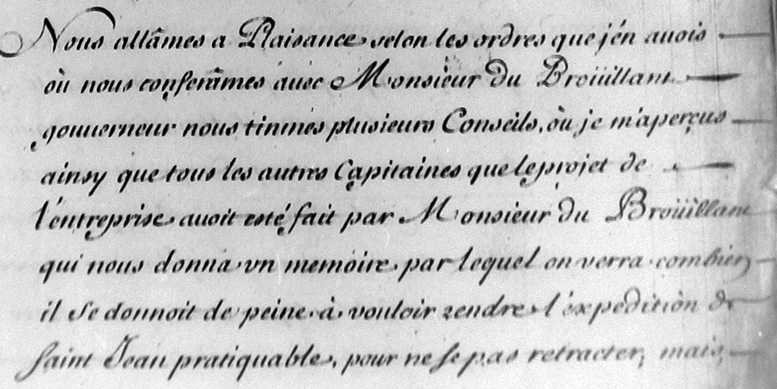 Nous allâmes a Plaisance selon les ordres que j'én auois
où nous conferâmes auec Monsieur du Broüillant
gouuerneur nous tinmes plusieurs Conseils, où je m'aperçus
ainsy que tous les autres Capitaines que le projet de
l'entreprise auoit esté fait par Monsieur du Broüillant
qui nous donna vn memoire par lequel on verra combien
il se donnoit de peine à vouloir rendre l'expedition de
Saint Jean pratiquable, pour ne se pas retracter, mais,